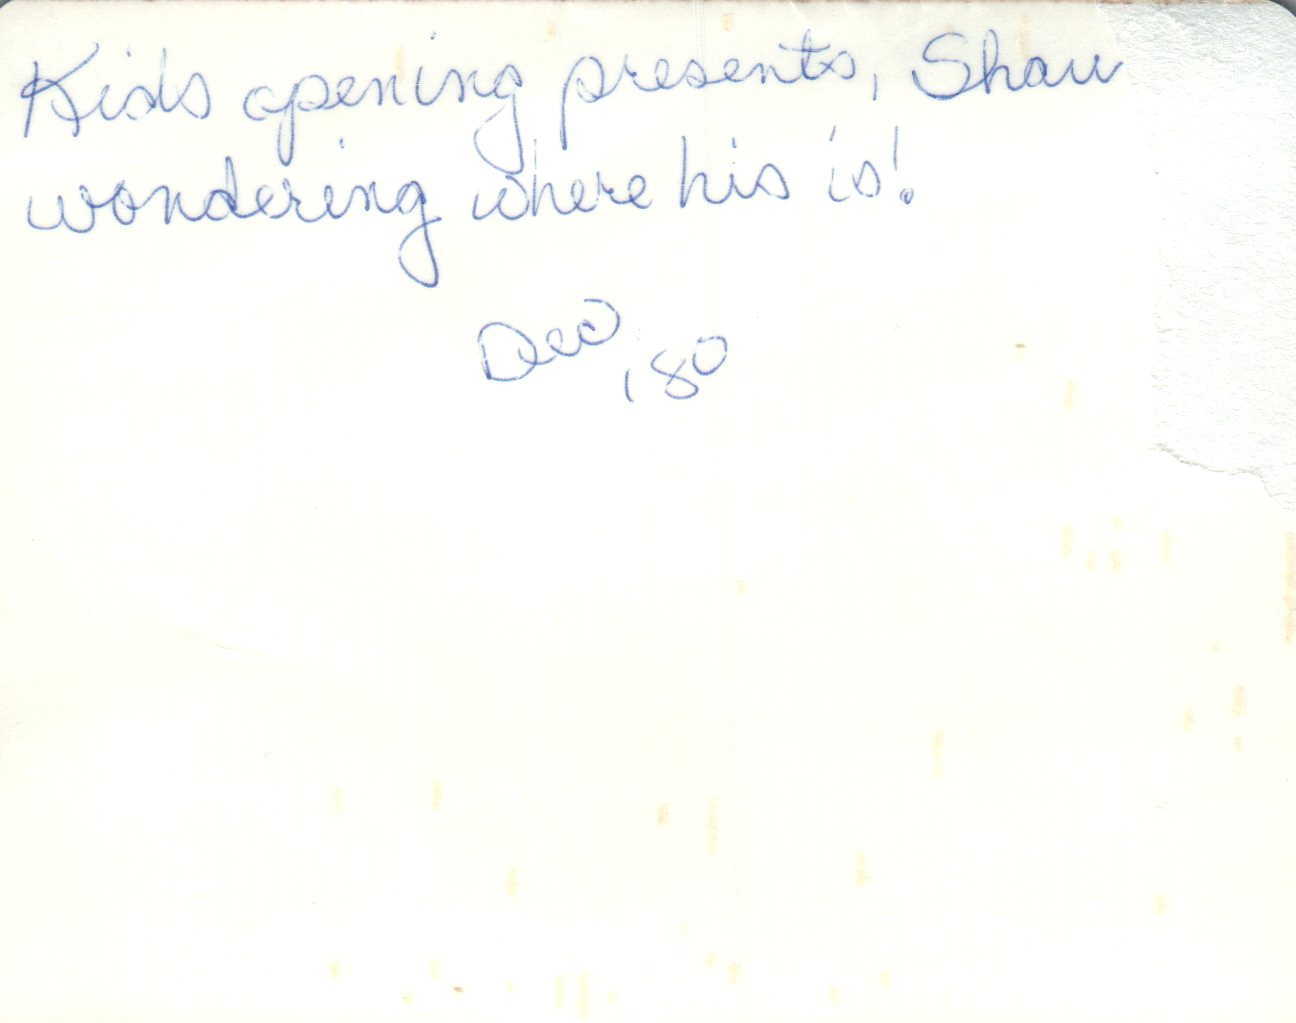 Kids opening presents, Shaw
wondering where his is!
Dec '80